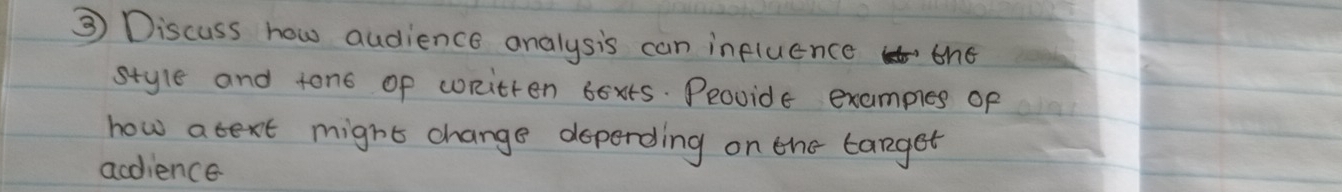 ③ Discuss how audience analysis can influence the
style and tone of written texts. Provide examples of
how a text might change depending on the target
audience